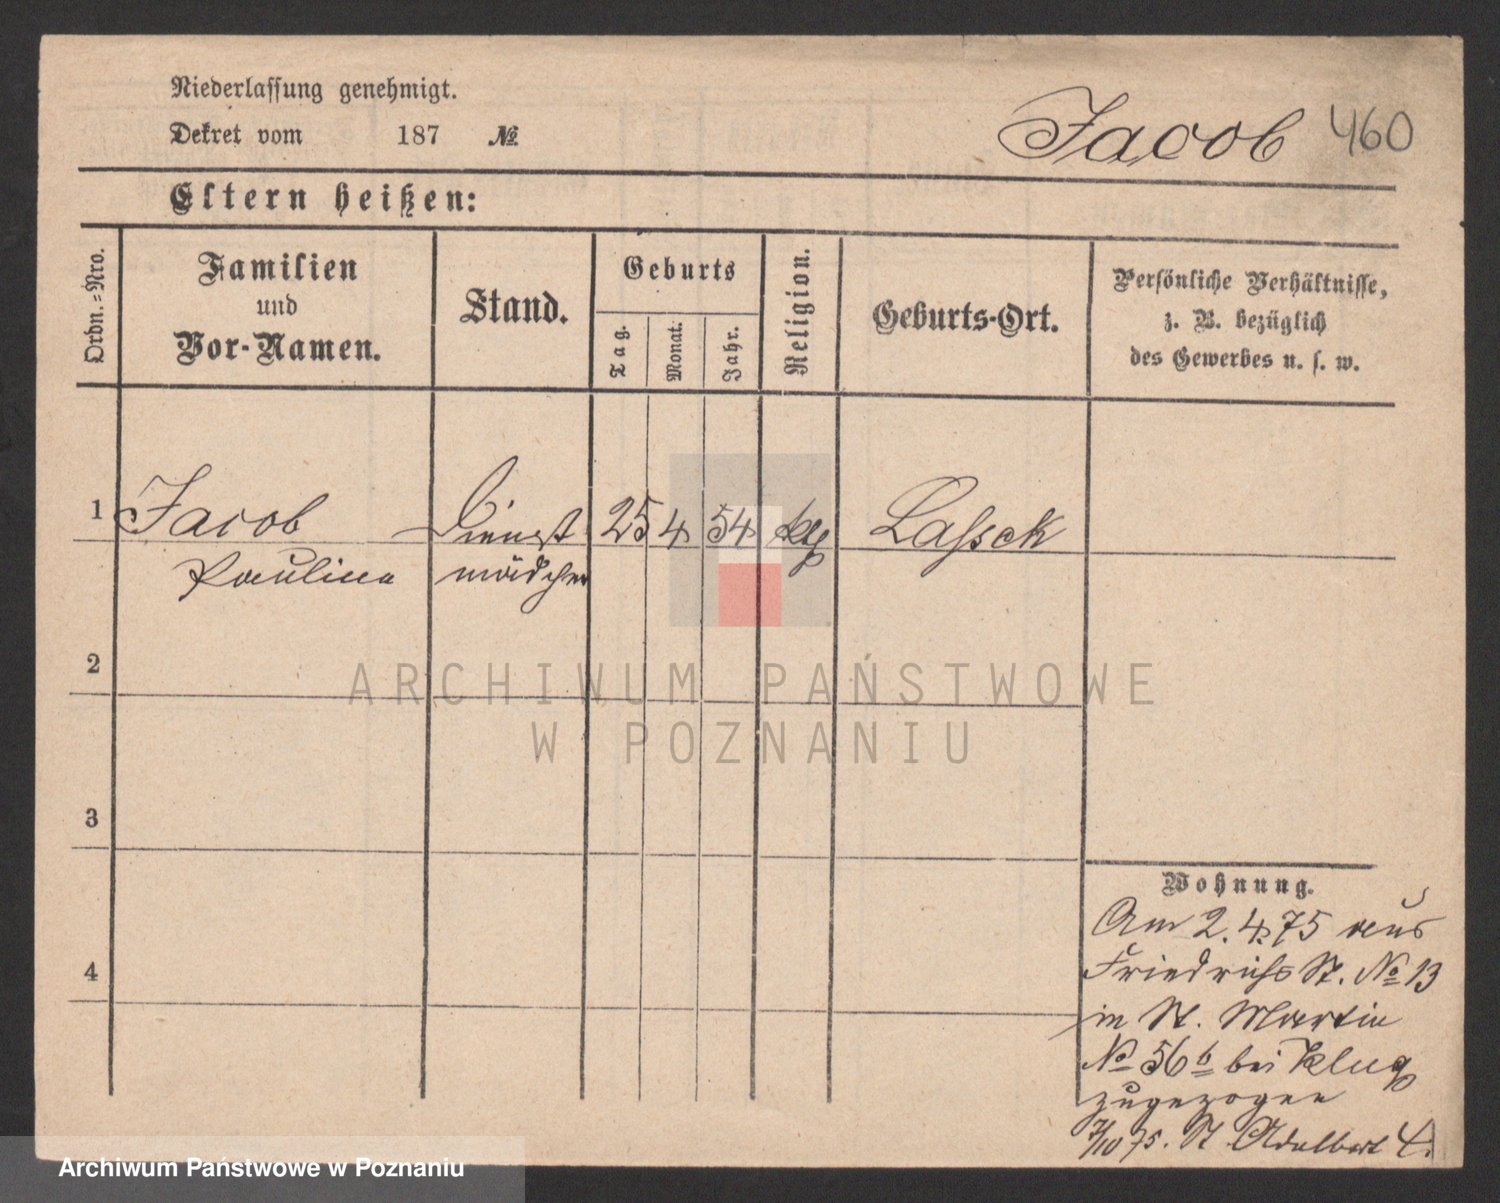 Niederlassung genehmigt.
Dekret vom 187 №
Jacob 460
Eltern heißen:
Ordn.=Nro.
Familien
und
Vor-Namen.
Stand.
Geburts
Tag.
Monat.
Jahr.
Religion.
Geburts-Ort.
Persönliche Verhältnisse,
z. B. bezüglich
des Gewerbes u. s. w.
1 Jacob Dienst 25 4 54 Lassek
Paulina mädchen
2
3
4
Wohnung.
Am 2.4.75 aus
Friedrichs St. № 13
in St. Martin
№ 56 b bei Klug
zugezogen
7/10 75. St Adalbert 4.
ARCHIWUM PAŃSTWOWE
W POZNANIU
Archiwum Państwowe w Poznaniu